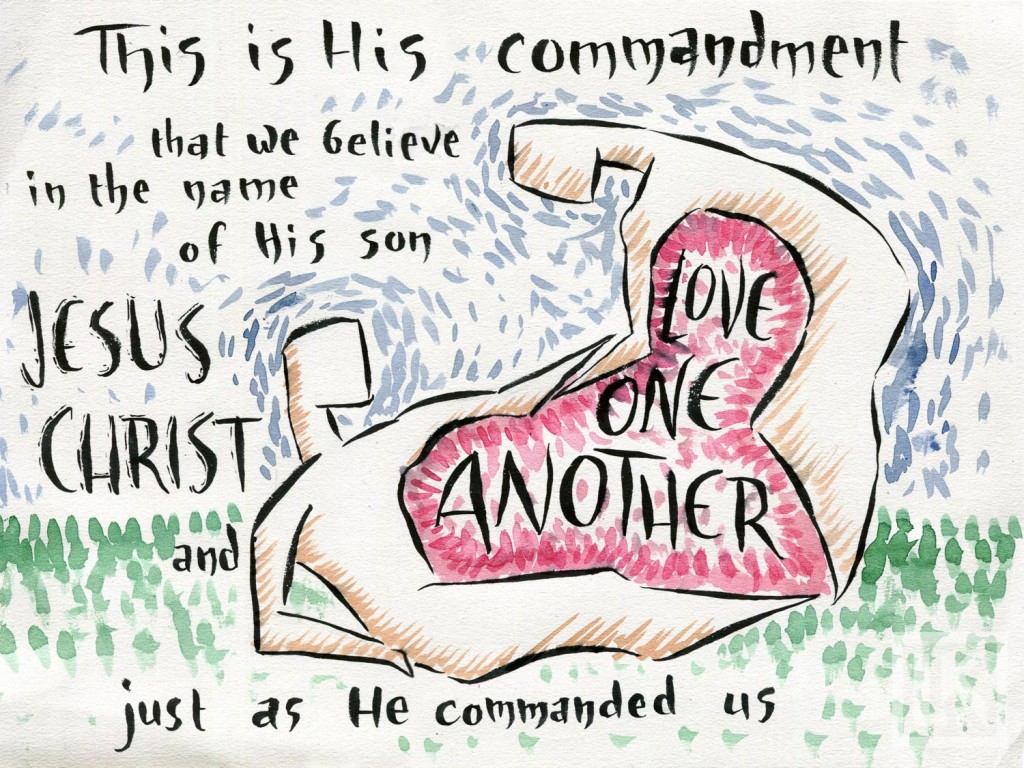 This is His commandment
that we believe
in the name
of His son
JESUS
CHRIST
and
LOVE
ONE
ANOTHER
just as He commanded us